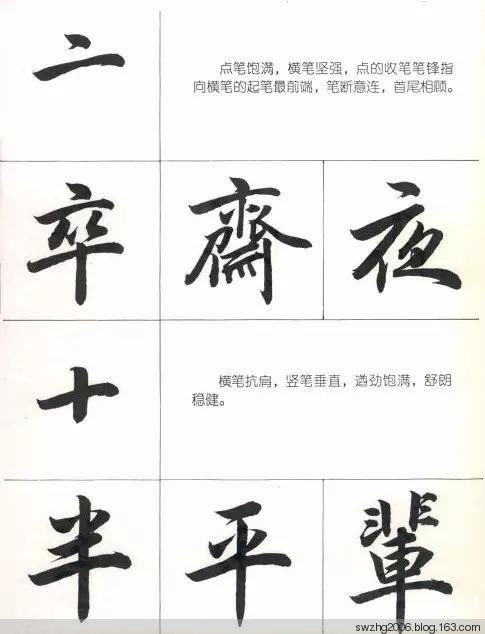 亠
点笔饱满，横笔坚强，点的收笔笔锋指
向横笔的起笔最前端，笔断意连，首尾相顾。
卒 齋 夜
十
横笔抗肩，竖笔垂直，遒劲饱满，舒朗
稳健。
半 平 輩
swzhg2006.blog.163.com